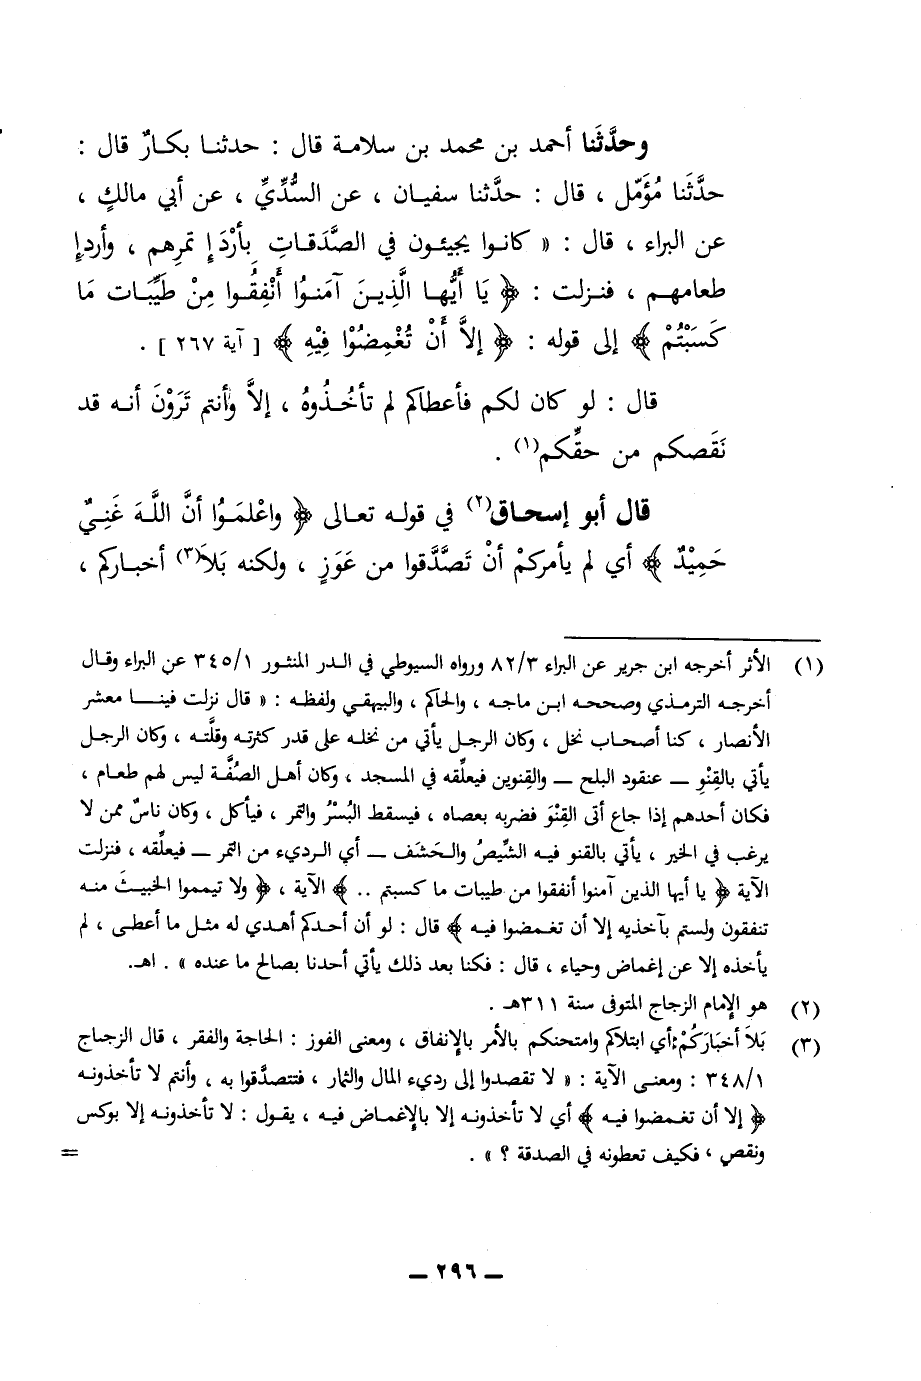 وحدَّثَنا أحمد بن محمد بن سلامة قال : حدثنا بكارٌ قال :
حدَّثَنا مُؤَمّل ، قال : حدَّثنا سفيان ، عن السُّدِّيِّ ، عن أبي مالكٍ ،
عن البراء ، قال : « كانوا يجيئون في الصَّدَقاتِ بِأَرْدَإِ تمرِهم ، وأردإِ
طعامهم ، فنزلت : ﴿ يَا أَيُّها الَّذِينَ آمَنوُا أَنْفِقُوا مِنْ طَيِّبَات مَا
كَسَبْتُمْ ﴾ إلى قوله : ﴿ إلاَّ أَنْ تُغْمِضُوْا فِيْهِ ﴾ [ آية ٢٦٧ ] .
قال : لو كان لكم فأعطاكم لم تأخُذُوهُ ، إلاَّ وأنتم تَرَوْنَ أنه قد
نَقَصكم من حقِّكم(١) .
قال أبو إسحاق(٢) في قوله تعالى ﴿ واعْلمَوُا أنَّ اللَّهَ غَنِيٌّ
حَمِيْدٌ ﴾ أي لم يأمركمْ أنْ تَصَّدَّقوا من عَوَزٍ ، ولكنه بَلاَ(٣) أخباركم ،
(١) الأثر أخرجه ابن جرير عن البراء ٨٢/٣ ورواه السيوطي في الدر المنثور ٣٤٥/١ عن البراء وقال
أخرجه الترمذي وصححه ابن ماجه ، والحاكم ، والبيهقي ولفظه : « قال نزلت فينا معشر
الأنصار ، كنا أصحاب نخل ، وكان الرجل يأتي من نخله على قدر كثرته وقلَّته ، وكان الرجل
يأتي بالقِنْوِ ــ عنقود البلح ــ والقِنوين فيعلِّقه في المسجد ، وكان أهل الصُفَّة ليس لهم طعام ،
فكان أحدهم إذا جاع أتى القِنْوَ فضربه بعصاه ، فيسقط البُسْرُ والتمر ، فيأكل ، وكان ناسٌ ممن لا
يرغب في الخير ، يأتي بالقنو فيه الشِّيصُ والحَشَف ــ أي الرديء من التمر ــ فيعلِّقه ، فنزلت
الآية ﴿ يا أيها الذين آمنوا أنفقوا من طيبات ما كسبتم .. ﴾ الآية ، ﴿ ولا تيمموا الخبيثَ منه
تنفقون ولستم بآخذيه إلا أن تغمضوا فيه ﴾ قال : لو أن أحدكم أهدي له مثل ما أعطى ، لم
يأخذه إلا عن إغماض وحياء ، قال : فكنا بعد ذلك يأتي أحدنا بصالح ما عنده » . اهـ.
(٢) هو الإمام الزجاج المتوفى سنة ٣١١هـ .
(٣) بَلاَ أخبَارَكُمْ:أي ابتلاكم وامتحنكم بالأمر بالإنفاق ، ومعنى الفوز : الحاجة والفقر ، قال الزجاج
٣٤٨/١ : ومعنى الآية : « لا تقصدوا إلى رديء المال والثمار ، فتتصدَّقوا به ، وأنتم لا تأخذونه
﴿ إلا أن تغمضوا فيه ﴾ أي لا تأخذونه إلا بالإغماض فيه ، يقول : لا تأخذونه إلا بوكس
ونقص ، فكيف تعطونه في الصدقة ؟ » . =
ــ ٢٩٦ ــ